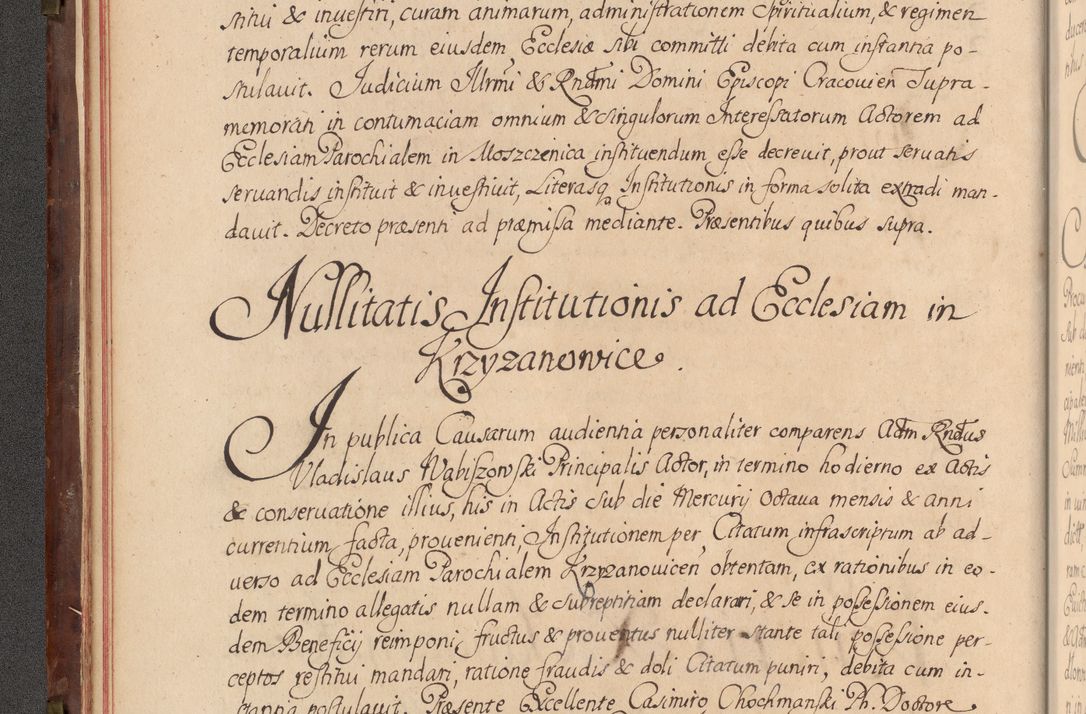 stitui & investiri, curam animarum, administrationem Spiritualium, & regimen
temporalium rerum eiusdem Ecclesiæ sibi committi debita cum instantia po-
stulavit. Judicium Illrmi & Rndmi Domini Episcopi Cracovien Supra-
memorati in contumaciam omnium & singulorum Interessatorum Actorem ad
Ecclesiam Parochialem in Moszczenica instituendum esse decrevit, prout servatis
servandis instituit & investivit, Literasq Institutionis in forma solita extradi man-
davit. Decreto præsenti ad præmissa mediante. Præsentibus quibus supra.
Nullitatis Institutionis ad Ecclesiam in
Krzyzanowice.
In publica Causarum audientia personaliter comparens Adm Rndus
Vladislaus Wabiszowski Principalis Actor, in termino hodierno ex Actis
& conservatione illius, his in Actis sub die Mercurij Octava mensis & anni
currentium facta, provenienti, Institutionem per Citatum infrascriptum ab ad-
verso ad Ecclesiam Parochialem Krzyzanovicen obtentam, ex rationibus in eo-
dem termino allegatis nullam & subreptitiam declarari, & se in possessionem eius-
dem Beneficij reimponi, fructus & proventus nulliter stante tali possessione per-
ceptos restitui mandari, ratione fraudis & doli Citatum puniri, debita cum in-
stantia postulavit. Præsente Excellente Casimiro Chochmanski Ph. Doctore